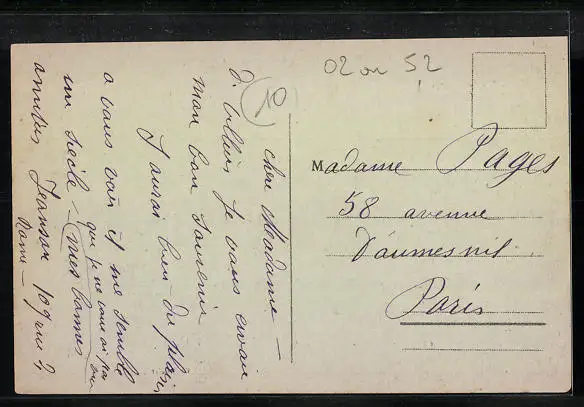 chère Madame –
D'Ollières je vous envoie
mon bon souvenir
J'aurai bien du plaisir
a vous voir il me semble
que je ne vous ai pas vu
un siècle – mes bonnes
amitiés
10
02 ou 52
Madame Pages
58 avenue
Daumesnil
Paris